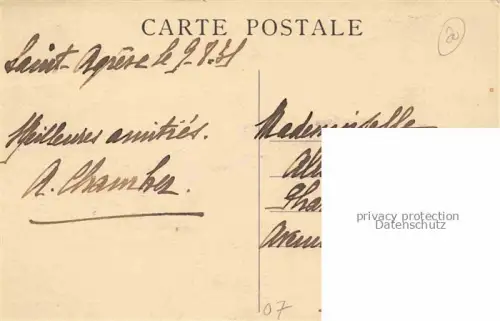 CARTE POSTALE
Saint-Agrève le 9-8-31
Meilleures amitiés.
A. Chamber
Mademoiselle
All
Phar
Avenu
privacy protection
Datenschutz
07